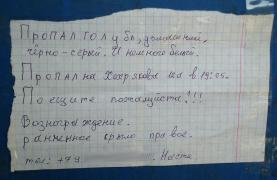 Пропал голубь, домашний,
чёрно-серый. И немного белый.
Пропал на Хохрякова в 19:05.
Поещите пожалуйста!!!
Вознаграждение.
раненное крыло правое.
тел: +79
Настя.